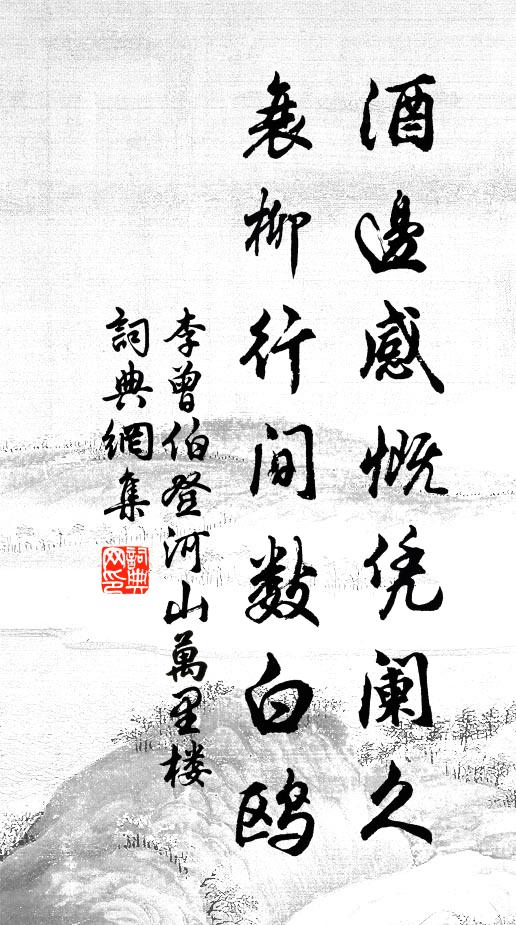 酒邊感慨凭阑久
衰柳行間數白鸥
李曾伯登河山萬里楼
詞典網集
詞典网印